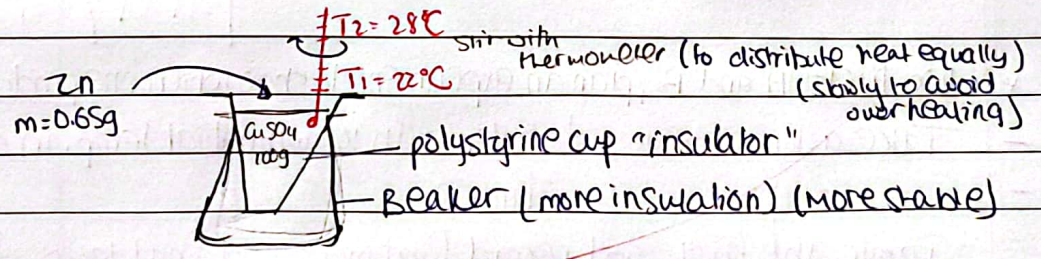 T2 = 28°C
stir with
thermometer (to distribute heat equally)
(slowly to avoid
overheating)
T1 = 22°C
Zn
m=0.65g
CuSO4
100g
polystyrine cup "insulator"
Beaker (more insulation) (More stable)